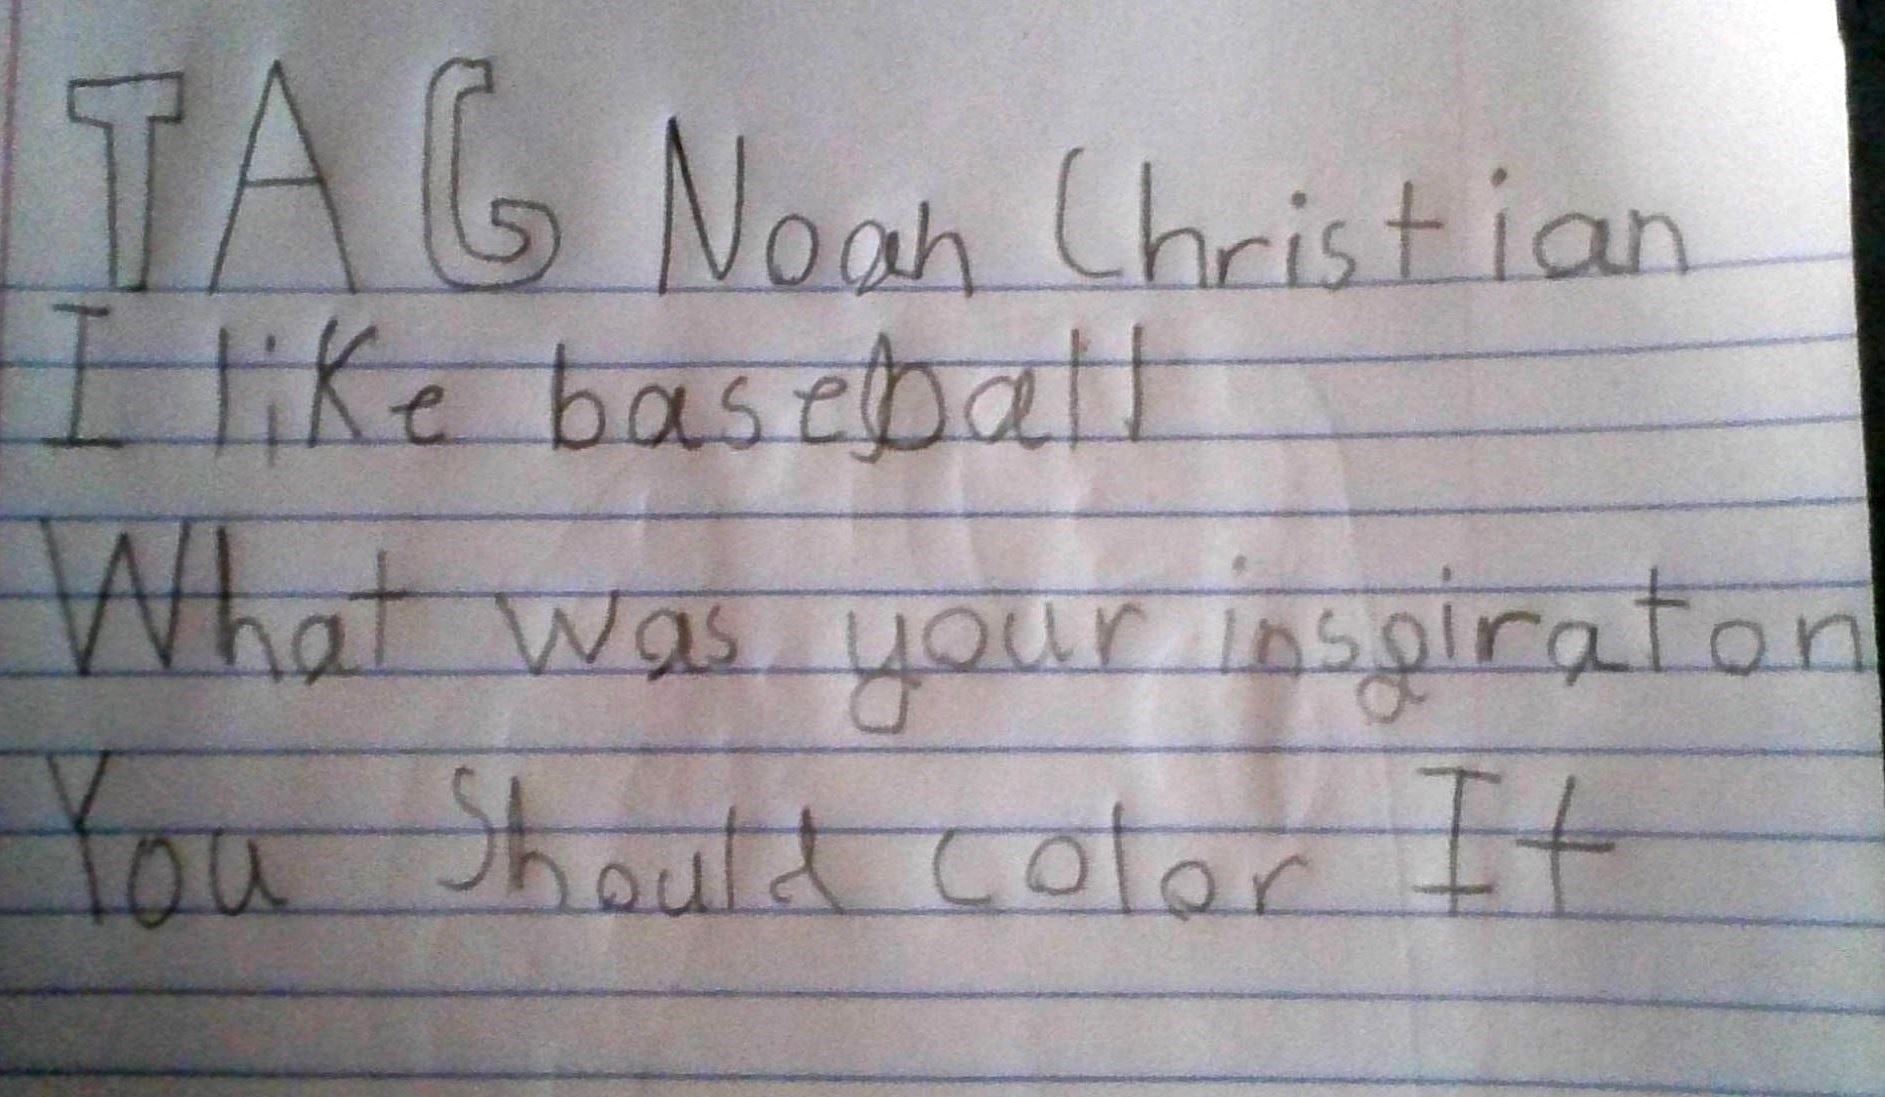 TAG Noah Christian
I like baseball
What was your inspiraton
You Should color It